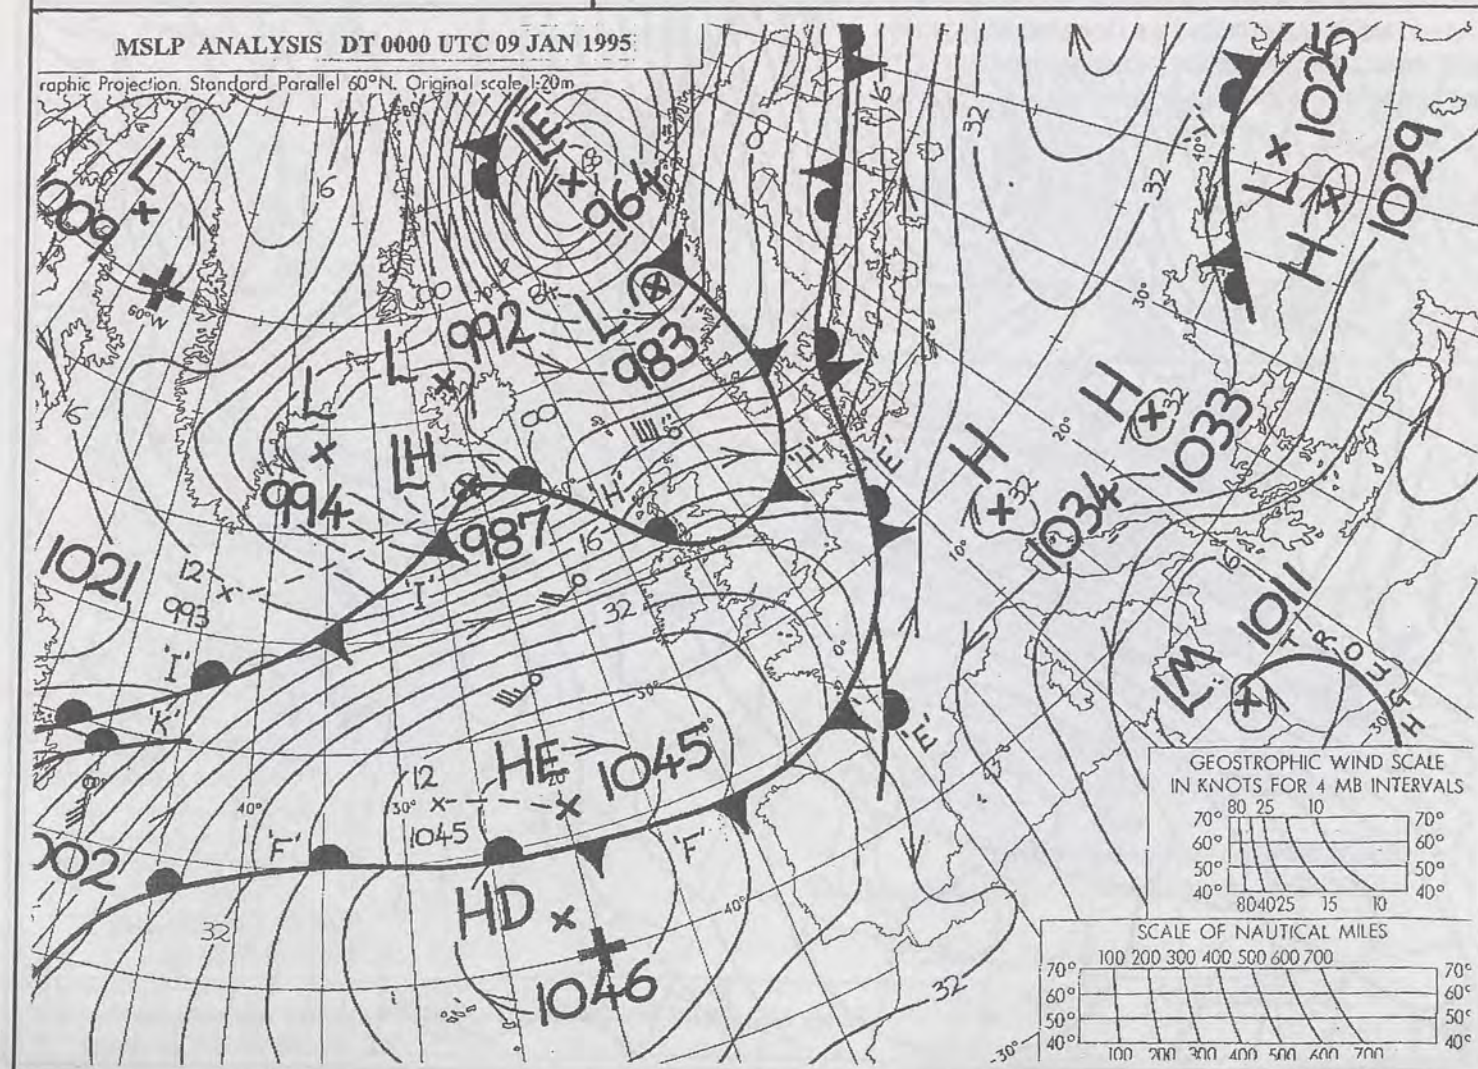 MSLP ANALYSIS DT 0000 UTC 09 JAN 1995
raphic Projection. Standard Parallel 60°N. Original scale 1:20m
LE
964
L
009
60°W
16
16
8
16
32
32
40°
'I'
L
1025
H
1029
30°
L
992
70°
84
L
983
8
8
L
994
LH
987
'H'
16
'H'
'E'
20°
H
32
1033
H
32
1034
10°
16
1021
12
993
'I'
32
0°
50°
LM
1011
TROUGH
30°
'I'
'K'
HE
1045
20°
12
1045
40°
30°
'E'
002
'F'
'F'
HD
1046
40°
32
32
30°
GEOSTROPHIC WIND SCALE
IN KNOTS FOR 4 MB INTERVALS
80 25 10
70° 70°
60° 60°
50° 50°
40° 40°
80 40 25 15 10
SCALE OF NAUTICAL MILES
100 200 300 400 500 600 700
70° 70°
60° 60°
50° 50°
40° 40°
100 200 300 400 500 600 700